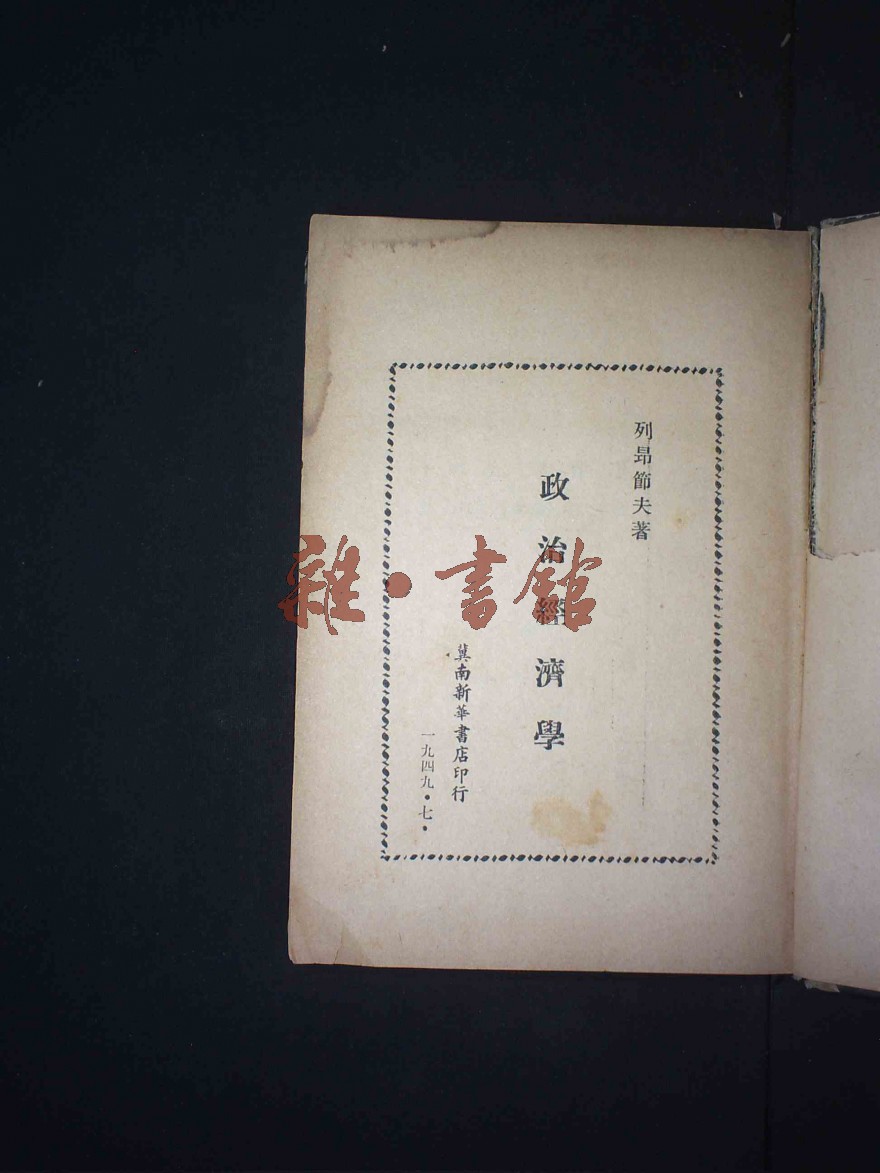 列昂節夫著
政治經濟學
冀南新華書店印行
一九四九·七·
雜·書館